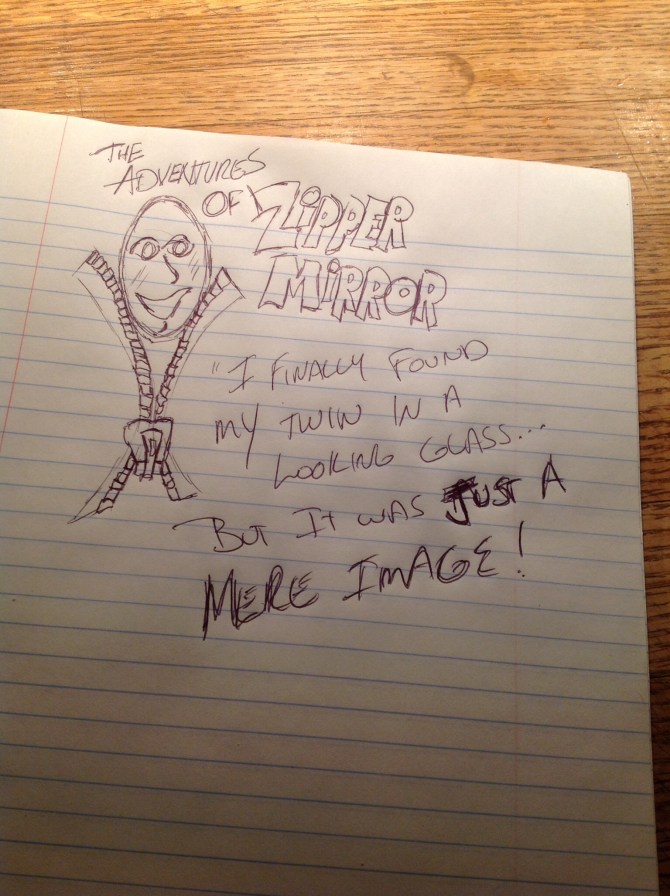 THE
ADVENTURES
OF ZIPPER
MIRROR
"I FINALLY FOUND
MY TWIN IN A
LOOKING GLASS...
BUT IT WAS JUST A
MERE IMAGE!